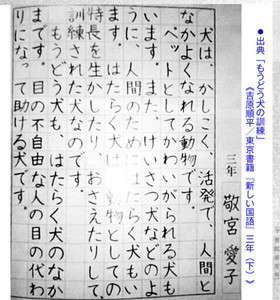 ●出典「もうどう犬の訓練」
(吉原順平/東京書籍『新しい国語』三年(下))
三年 敬宮 愛子
犬は、かしこく、活発で、人間と
なかよくなれる動物です。
ペットとしてかわいがられる犬も
います。また、けいさつ犬などのよ
うに、人間のためにはたらく犬もい
ます。はたらく犬は、動物としての
特長を生かしたり、おさえたりして、
訓練された犬なのです。
もうどう犬も、はたらく犬のなか
まです。目の不自由な人の目の代わ
りになって助ける犬です。